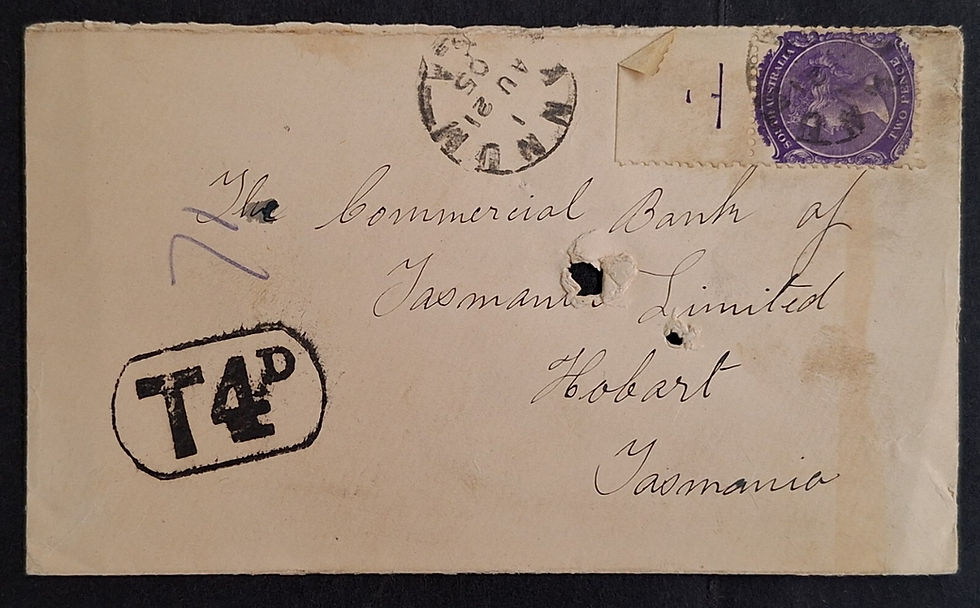 SOUTH AUSTRALIA
TWO PENCE
AU 21
05
The Commercial Bank of
Tasmania Limited
Hobart
Tasmania
T4D